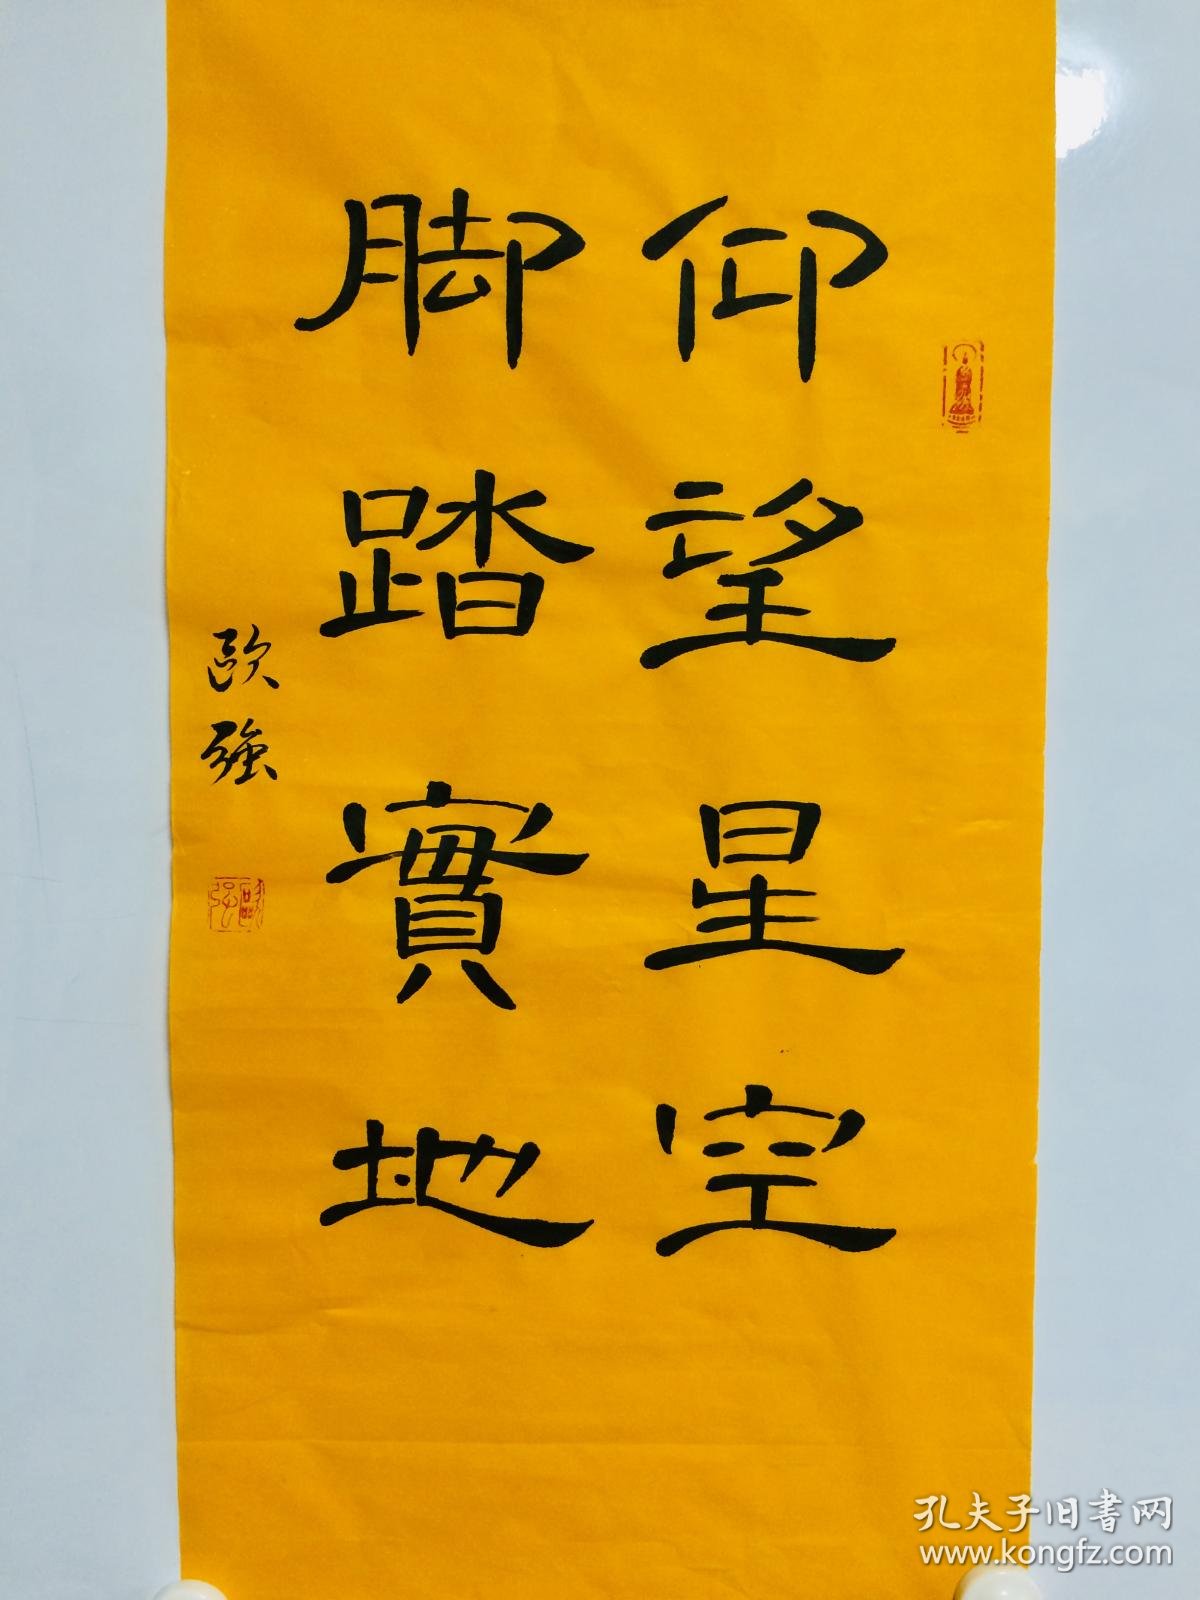 仰望星空
脚踏實地
歐強
歐強
孔夫子旧書网
www.kongfz.com